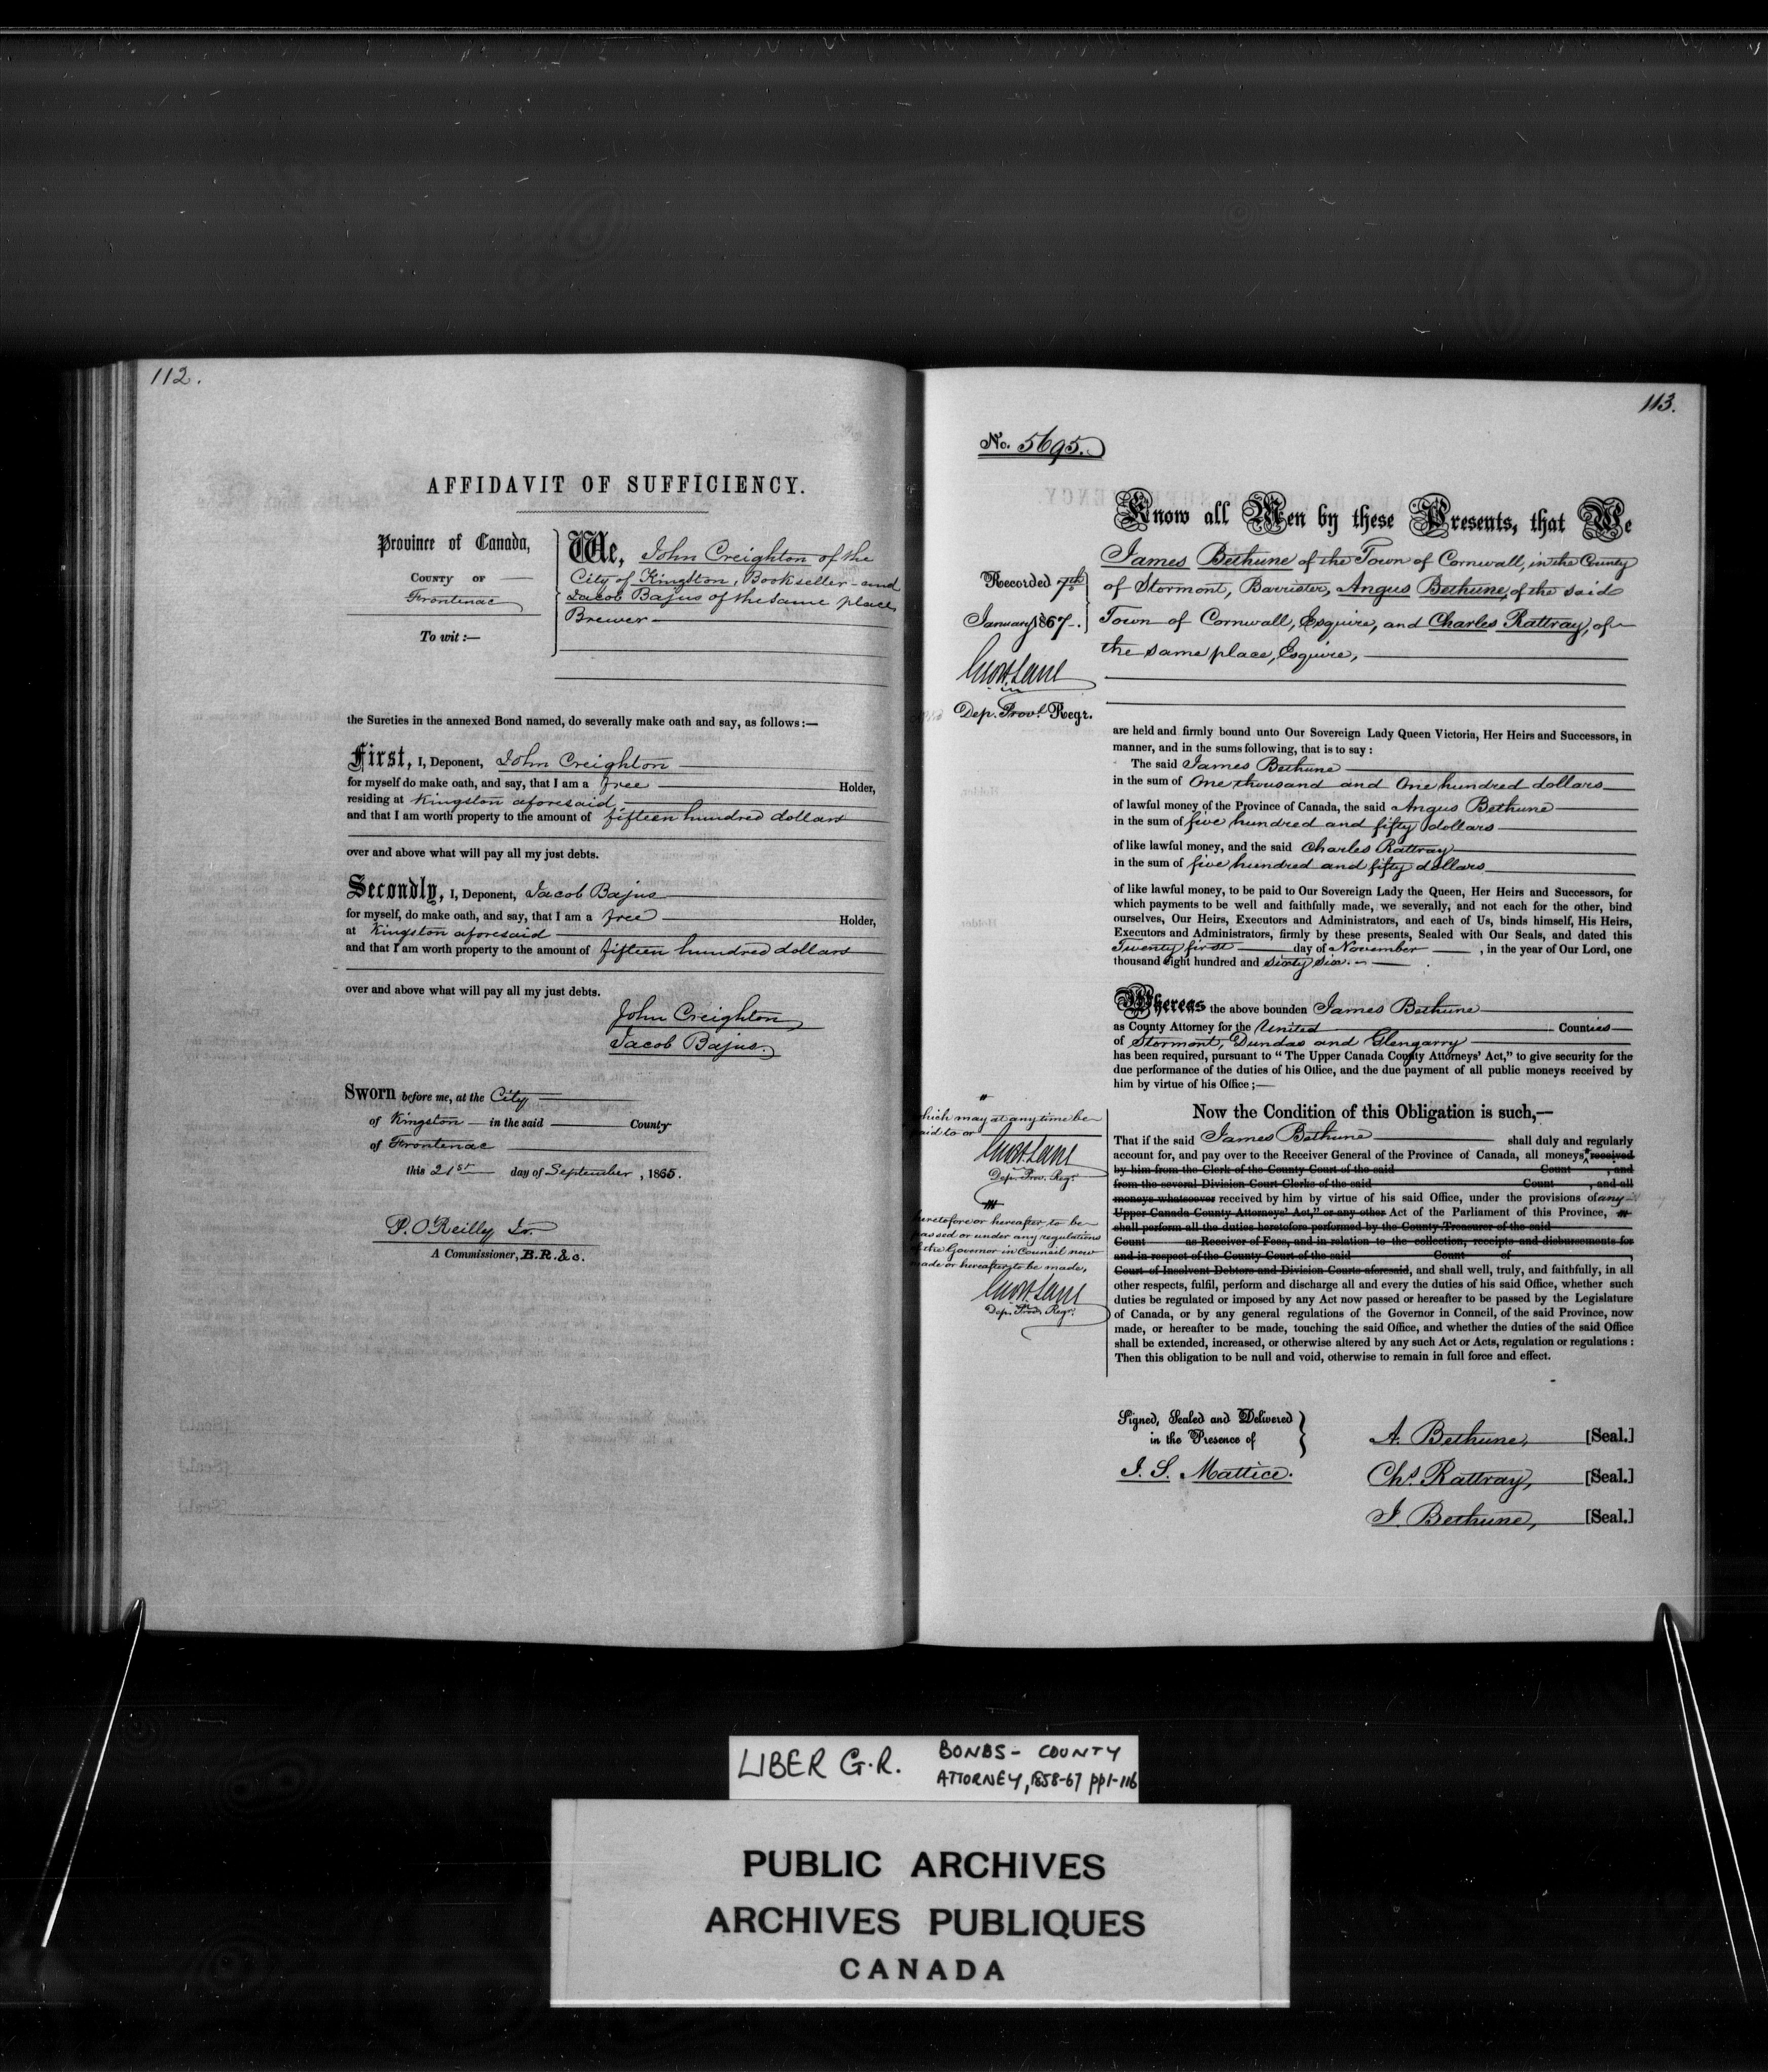 112.
AFFIDAVIT OF SUFFICIENCY.
Province of Canada,
COUNTY OF
Frontenac
To wit :—
We, John Creighton of the
City of Kingston, Bookseller and
Jacob Bajus of the same place
Brewer
the Sureties in the annexed Bond named, do severally make oath and say, as follows :—
First, I, Deponent, John Creighton
for myself do make oath, and say, that I am a free Holder,
residing at Kingston aforesaid
and that I am worth property to the amount of fifteen hundred dollars
over and above what will pay all my just debts.
Secondly, I, Deponent, Jacob Bajus
for myself, do make oath, and say, that I am a free Holder,
at Kingston aforesaid
and that I am worth property to the amount of fifteen hundred dollars
over and above what will pay all my just debts.
John Creighton
Jacob Bajus.
Sworn before me, at the City
of Kingston in the said County
of Frontenac
this 21st day of September, 1865.
P. O'Reilly Jr.
A Commissioner, B.R. &c.
113.
No. 5695.
Recorded 7th
January 1867.
Dep. Provl. Regr.
Know all Men by these Presents, that We
James Bethune of the Town of Cornwall, in the County
of Stormont, Barrister, Angus Bethune, of the said
Town of Cornwall, Esquire, and Charles Rattray, of
the same place, Esquire,
are held and firmly bound unto Our Sovereign Lady Queen Victoria, Her Heirs and Successors, in
manner, and in the sums following, that is to say :
The said James Bethune
in the sum of One thousand and One hundred dollars
of lawful money of the Province of Canada, the said Angus Bethune
in the sum of five hundred and fifty dollars
of like lawful money, and the said Charles Rattray
in the sum of five hundred and fifty dollars
of like lawful money, to be paid to Our Sovereign Lady the Queen, Her Heirs and Successors, for
which payments to be well and faithfully made, we severally, and not each for the other, bind
ourselves, Our Heirs, Executors and Administrators, and each of Us, binds himself, His Heirs,
Executors and Administrators, firmly by these presents, Sealed with Our Seals, and dated this
Twenty first day of November , in the year of Our Lord, one
thousand eight hundred and sixty six.
Whereas the above bounden James Bethune
as County Attorney for the United Counties
of Stormont, Dundas and Glengarry
has been required, pursuant to "The Upper Canada County Attorneys' Act," to give security for the
due performance of the duties of his Office, and the due payment of all public moneys received by
him by virtue of his Office ;—
Now the Condition of this Obligation is such,—
That if the said James Bethune shall duly and regularly
account for, and pay over to the Receiver General of the Province of Canada, all moneys received
by him from the Clerk of the County Court of the said Count , and
from the several Division Court Clerks of the said Count , and all
moneys whatsoever received by him by virtue of his said Office, under the provisions of any
Upper Canada County Attorneys' Act," or any other Act of the Parliament of this Province,
shall perform all the duties heretofore performed by the County Treasurer of the said
Count as Receiver of Fees, and in relation to the collection, receipts and disbursements for
and in respect of the County Court of the said Count of
Court of Insolvent Debtors and Division Courts aforesaid, and shall well, truly, and faithfully, in all
other respects, fulfil, perform and discharge all and every the duties of his said Office, whether such
duties be regulated or imposed by any Act now passed or hereafter to be passed by the Legislature
of Canada, or by any general regulations of the Governor in Council, of the said Province, now
made, or hereafter to be made, touching the said Office, and whether the duties of the said Office
shall be extended, increased, or otherwise altered by any such Act or Acts, regulation or regulations :
Then this obligation to be null and void, otherwise to remain in full force and effect.
which may at any time be
paid to or
Dep. Prov. Regr.
heretofore or hereafter, to be
passed or under any regulations
of the Governor in Council now
made or hereafter to be made,
Dep. Prov. Regr.
Signed, Sealed and Delivered
in the Presence of
J. S. Mattice.
A. Bethune, [Seal.]
Chs. Rattray, [Seal.]
J. Bethune, [Seal.]
LIBER G.R. BONDS - COUNTY
ATTORNEY, 1858-67 pp1-116
PUBLIC ARCHIVES
ARCHIVES PUBLIQUES
CANADA